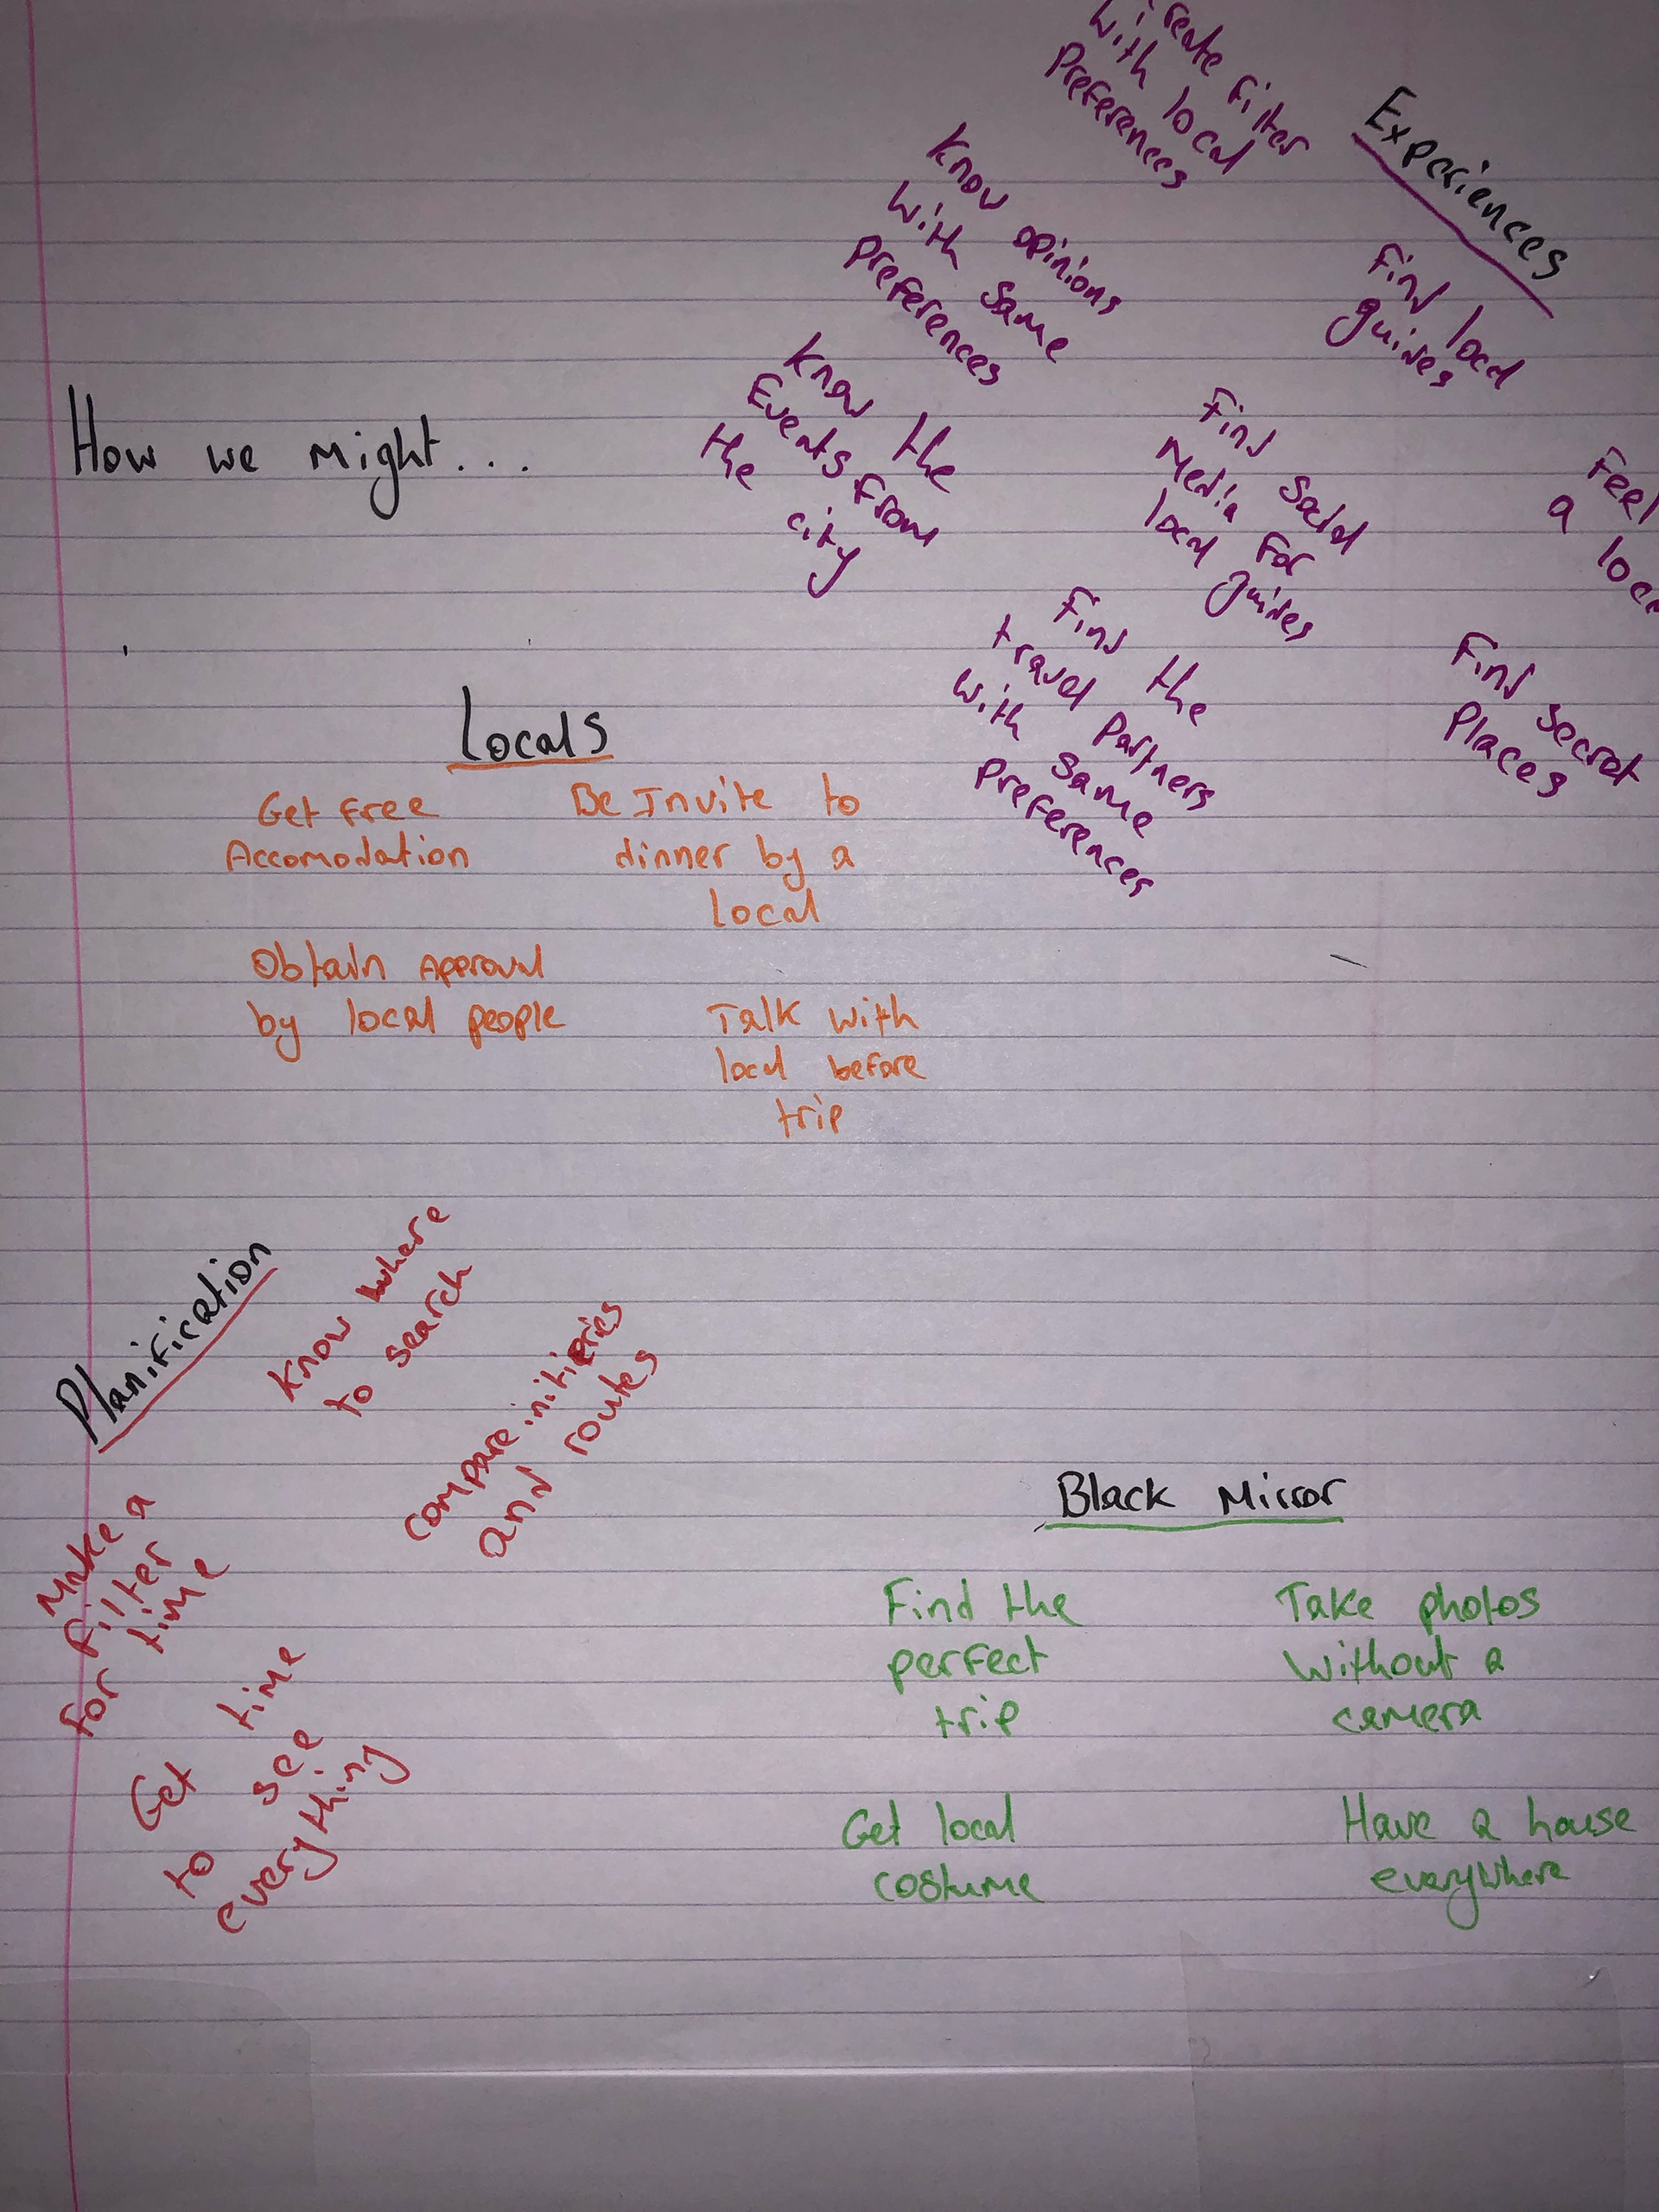 How we might...
Experiences
create filter
with local
preferences
Find local
guides
Know opinions
with same
preferences
Find Social
Media for
local guides
Feel
a
Know the
Events from
the city
Find the
travel partners
with same
preferences
Find secret
Places
Locals
Get free
Accomodation
Be Invite to
dinner by a
local
Obtain Approval
by local people
Talk with
local before
trip
Planification
Know where
to search
compare initieries
and routes
Make a
filter
for time
Get time
to see
everything
Black Mirror
Find the
perfect
trip
Take photos
Without a
camera
Get local
costume
Have a house
everywhere